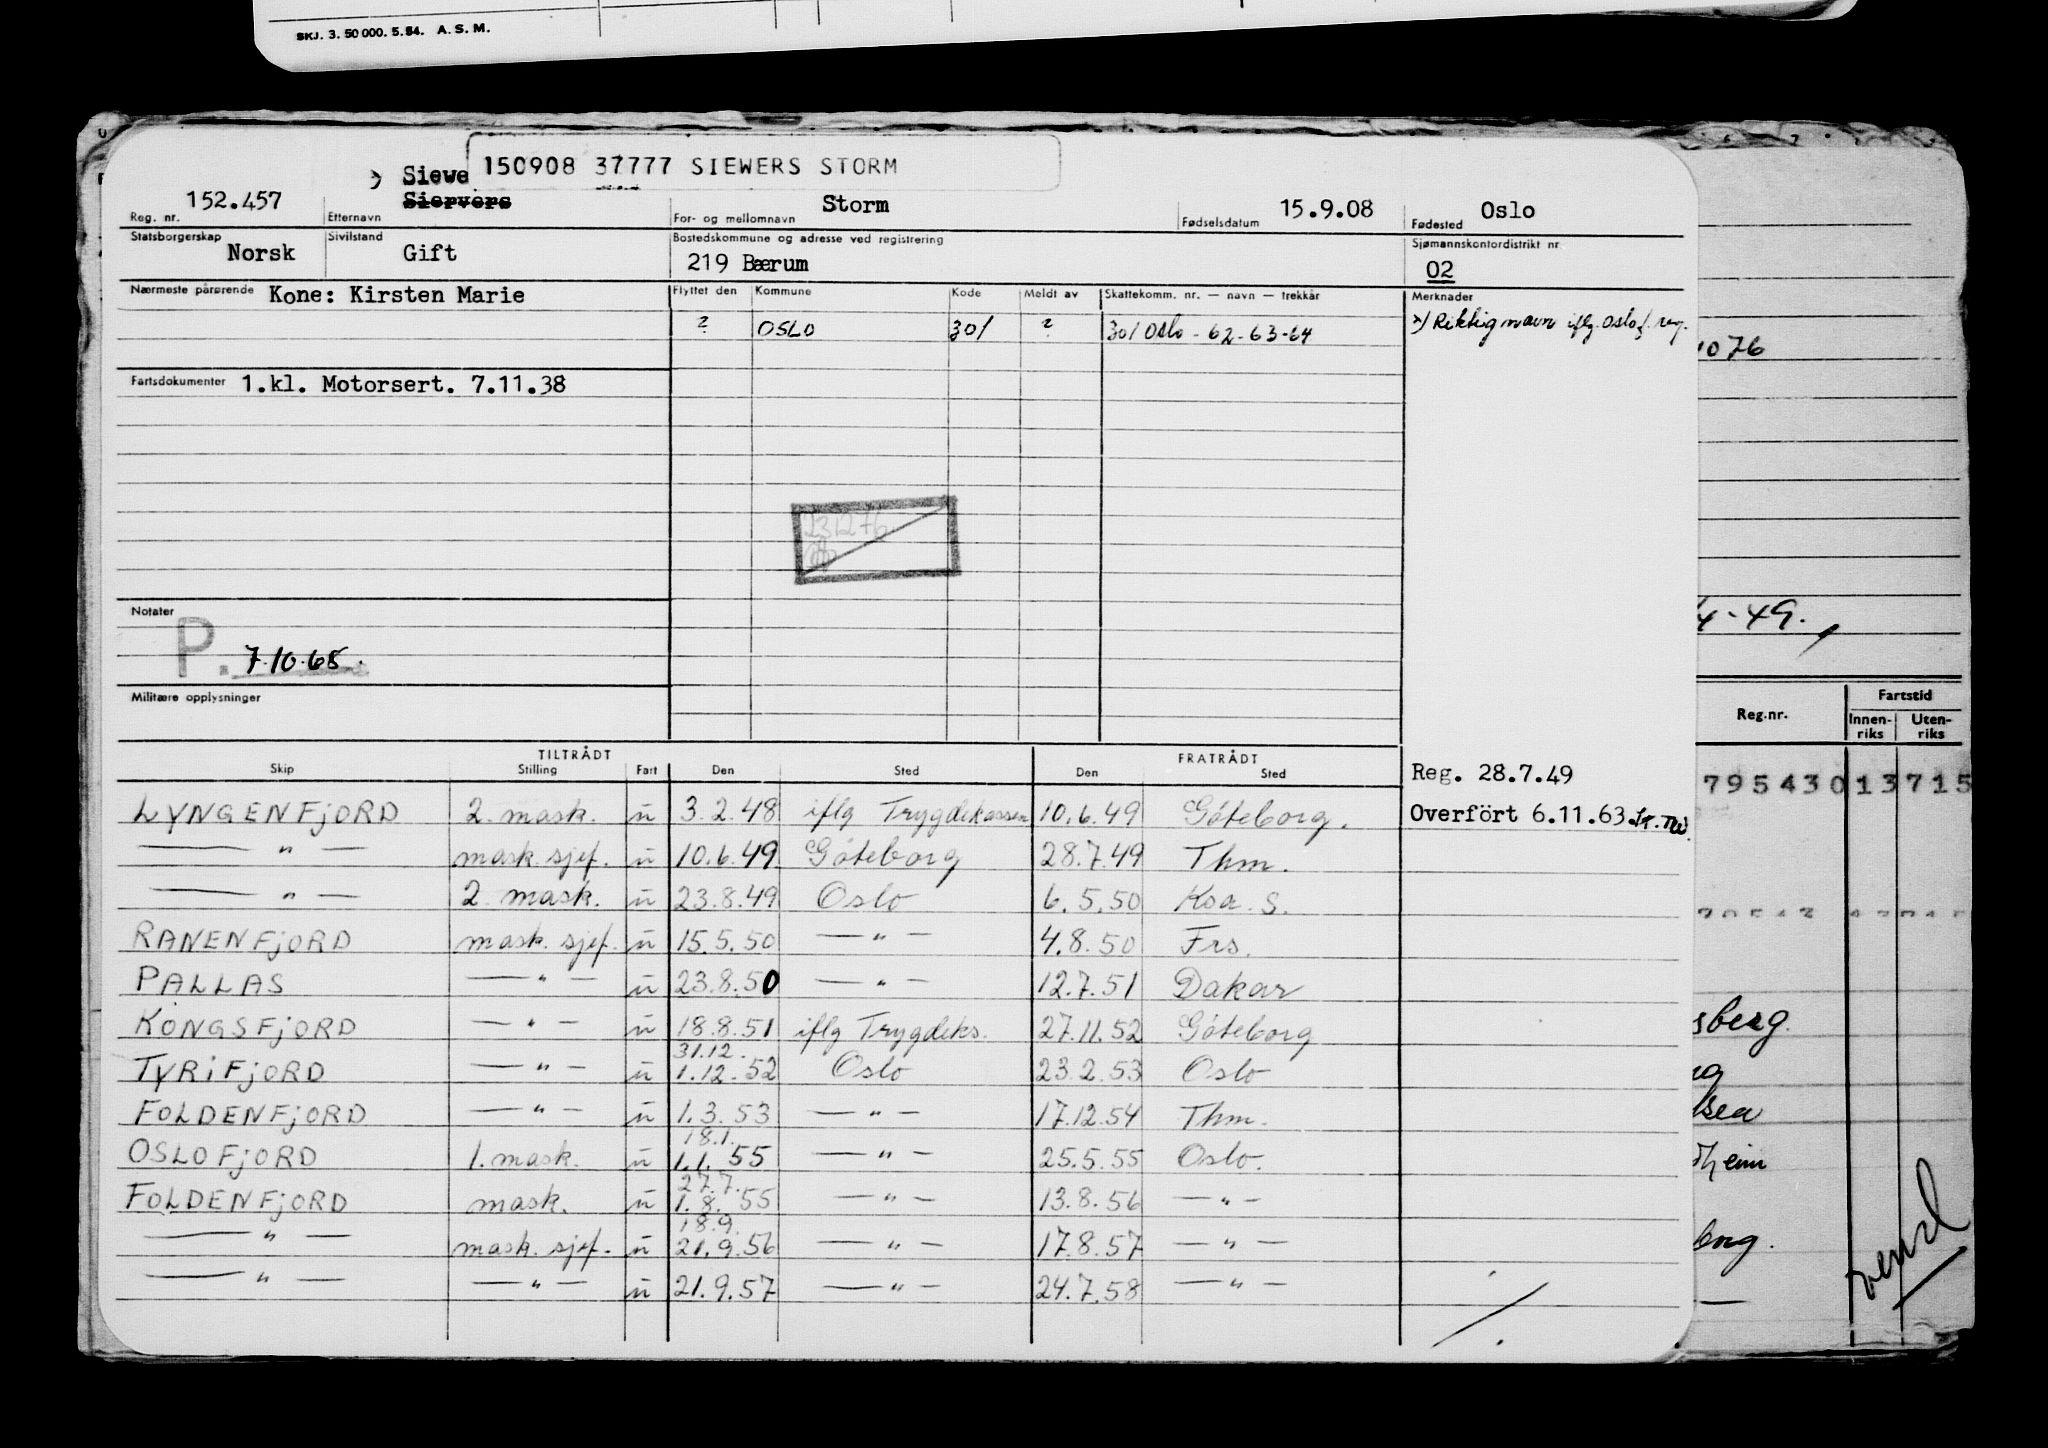 SKJ. 3. 50 000. 5. 54. A. S. M.
150908 37777 SIEWERS STORM
Siewe
152.457 Siervers Storm 15.9.08 Oslo
Reg. nr. Etternavn For- og mellomnavn Fødselsdatum Fødested
Statsborgerskap Sivilstand Bostedskommune og adresse ved registrering Sjømannskontordistrikt nr.
Norsk Gift 219 Bærum 02
Nærmeste pårørende Kone: Kirsten Marie Flyttet den Kommune Kode Meldt av Skattekomm. nr. — navn — trekkår Merknader
? OSLO 301 ? 301 Oslo - 62-63-64 x) Riktig navn iflg. Oslo f. reg.
1076
Fartsdokumenter 1.kl. Motorsert. 7.11.38
231276
Notater
P. 7.10.68.
4-49.
Militære opplysninger
Reg.nr. Fartstid
Innenriks Utenriks
TILTRÅDT FRATRÅDT
Skip Stilling Fart Den Sted Den Sted
Reg. 28.7.49
795430 13 715
LYNGENFJORD 2. mask. u 3.2.48 iflg Trygdekassen 10.6.49 Göteborg. Overfört 6.11.63.
— " — mask. sjef. u 10.6.49 Göteborg 28.7.49 Thm.
— " — 2. mask. u 23.8.49 Oslo 6.5.50 Ksa. S.
RANENFJORD mask. sjef. u 15.5.50 — " — 4.8.50 Frs.
PALLAS — " — u 23.8.50 — " — 12.7.51 Dakar
KONGSFJORD — " — u 18.8.51 iflg Trygdeks. 27.11.52 Göteborg
31.12.
TYRIFJORD — " — u 1.12.52 Oslo 23.2.53 Oslo
FOLDENFJORD — " — u 1.3.53 — " — 17.12.54 Thm.
18.1.
OSLOFJORD 1. mask. u 1.1.55 — " — 25.5.55 Oslo.
27.7.
FOLDENFJORD mask. u 1.8.55 — " — 13.8.56 — " —
18.9.
— " — mask. sjef. u 21.9.56 — " — 17.8.57 — " —
— " — — " — u 21.9.57 — " — 24.7.58 — " —
sberg.
dheim